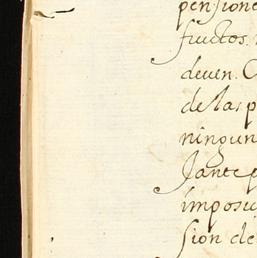 pensione
fructos.
deven. C
de las p
ningun
Jante p
imposic
sion de